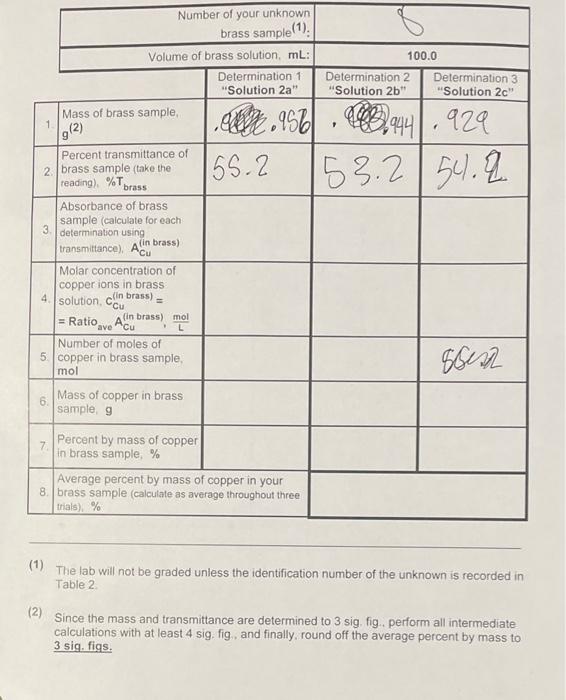 Number of your unknown
brass sample(1):
8
Volume of brass solution, mL:
100.0
Determination 1
"Solution 2a"
Determination 2
"Solution 2b"
Determination 3
"Solution 2c"
1. Mass of brass sample,
g(2)
.956
.944
.929
2. Percent transmittance of
brass sample (take the
reading), %Tbrass
55.2
53.2
54.2
3. Absorbance of brass
sample (calculate for each
determination using
transmittance), ACu(in brass)
4. Molar concentration of
copper ions in brass
solution, CCu(in brass) =
= Ratioave ACu(in brass), mol/L
5. Number of moles of
copper in brass sample,
mol
6. Mass of copper in brass
sample, g
7. Percent by mass of copper
in brass sample, %
8. Average percent by mass of copper in your
brass sample (calculate as average throughout three
trials), %
(1) The lab will not be graded unless the identification number of the unknown is recorded in
Table 2.
(2) Since the mass and transmittance are determined to 3 sig. fig., perform all intermediate
calculations with at least 4 sig. fig., and finally, round off the average percent by mass to
3 sig. figs.